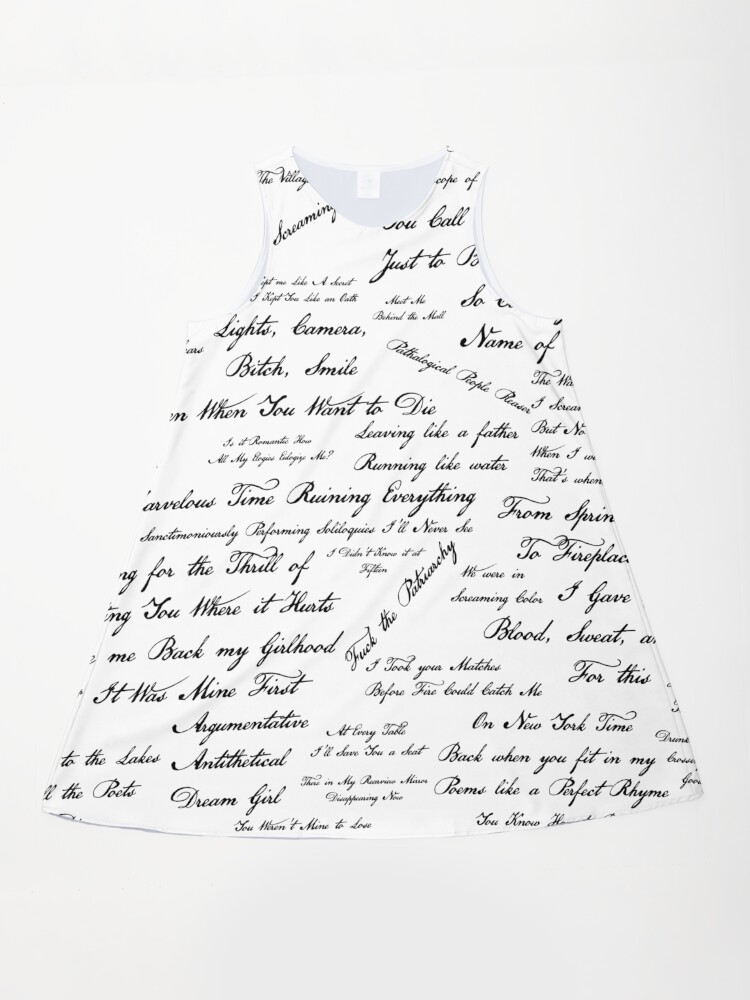 The Villag
cope of
Screaming
You Call
Just to B
ept me Like A Secret
I Kept You Like an Oath
Meet Me
Behind the Mall
So
Lights, Camera,
Bitch, Smile
Name of
ears
Pathalogical People Pleaser
The Wa
I Screa
But No
en When You Want to Die
Leaving like a father
Running like water
When I w
That's when
Is it Romantic How
All My Elogies Eulogize Me?
arvelous Time Ruining Everything
From Sprin
Sanctimoniously Performing Soliloquies I'll Never See
To Fireplac
ng for the Thrill of
I Didn't Know it at
Fifteen
Fuck the Patriarchy
We were in
Screaming Color
I Gave
ing You Where it Hurts
Blood, Sweat, a
e me Back my Girlhood
It Was Mine First
I Took your Matches
Before Fire Could Catch Me
For this
Argumentative
Antithetical
Dream Girl
At Every Table
I'll Save You a Seat
On New York Time
Back when you fit in my
Poems like a Perfect Rhyme
to the Lakes
ll the Poets
There in My Rearview Mirror
Disappearing Now
Drunk
Crosswo
Goo
You Weren't Mine to Lose
You Know